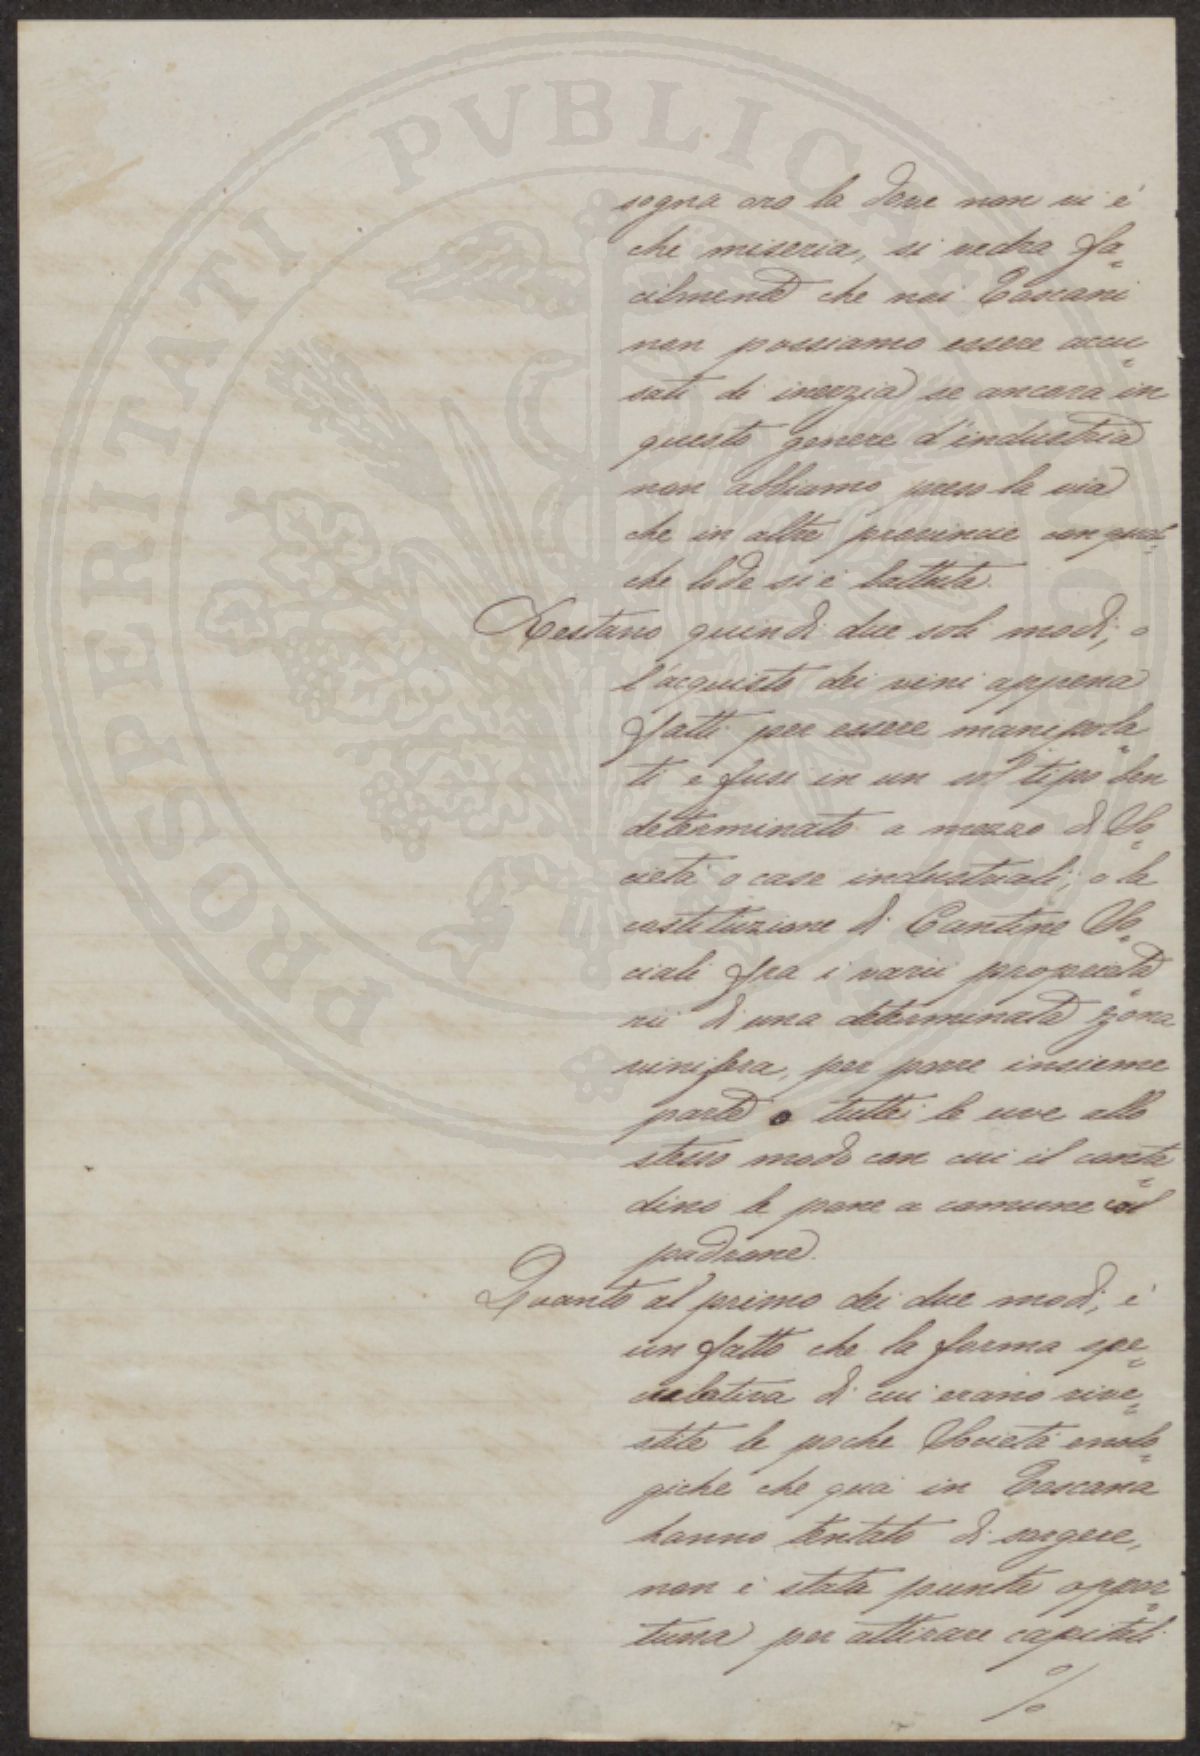 sogna oro la dove non vi è
che miseria, si vedra fa=
cilmente che noi Toscani
non possiamo essere accu=
sati di inerzia se ancora in
questo genere d'industria
non abbiamo preso la via
che in altre provincie con qual=
che lode si è battuta.
Restano quindi due soli modi, o
l'acquisto dei vini appena
fatti per essere manipola=
ti e fusi in un sol tipo ben
determinato a mezzo di So=
cietà o case industriali; o la
costituzione di Cantine So=
ciali fra i varii proprieta=
rii di una determinata zona
vinifera, per porre insieme
parte o tutte le uve allo
stesso modo con cui il conta=
dino le pone a comune col
padrone.
Quanto al primo dei due modi, è
un fatto che la forma spe=
culativa di cui erano rive=
stite le poche Società enolo=
giche che qua in Toscana
hanno tentato di sorgere,
non è stata punto oppor=
tuna per attirare capitali
%
PROSPERITATI PVBLICAE